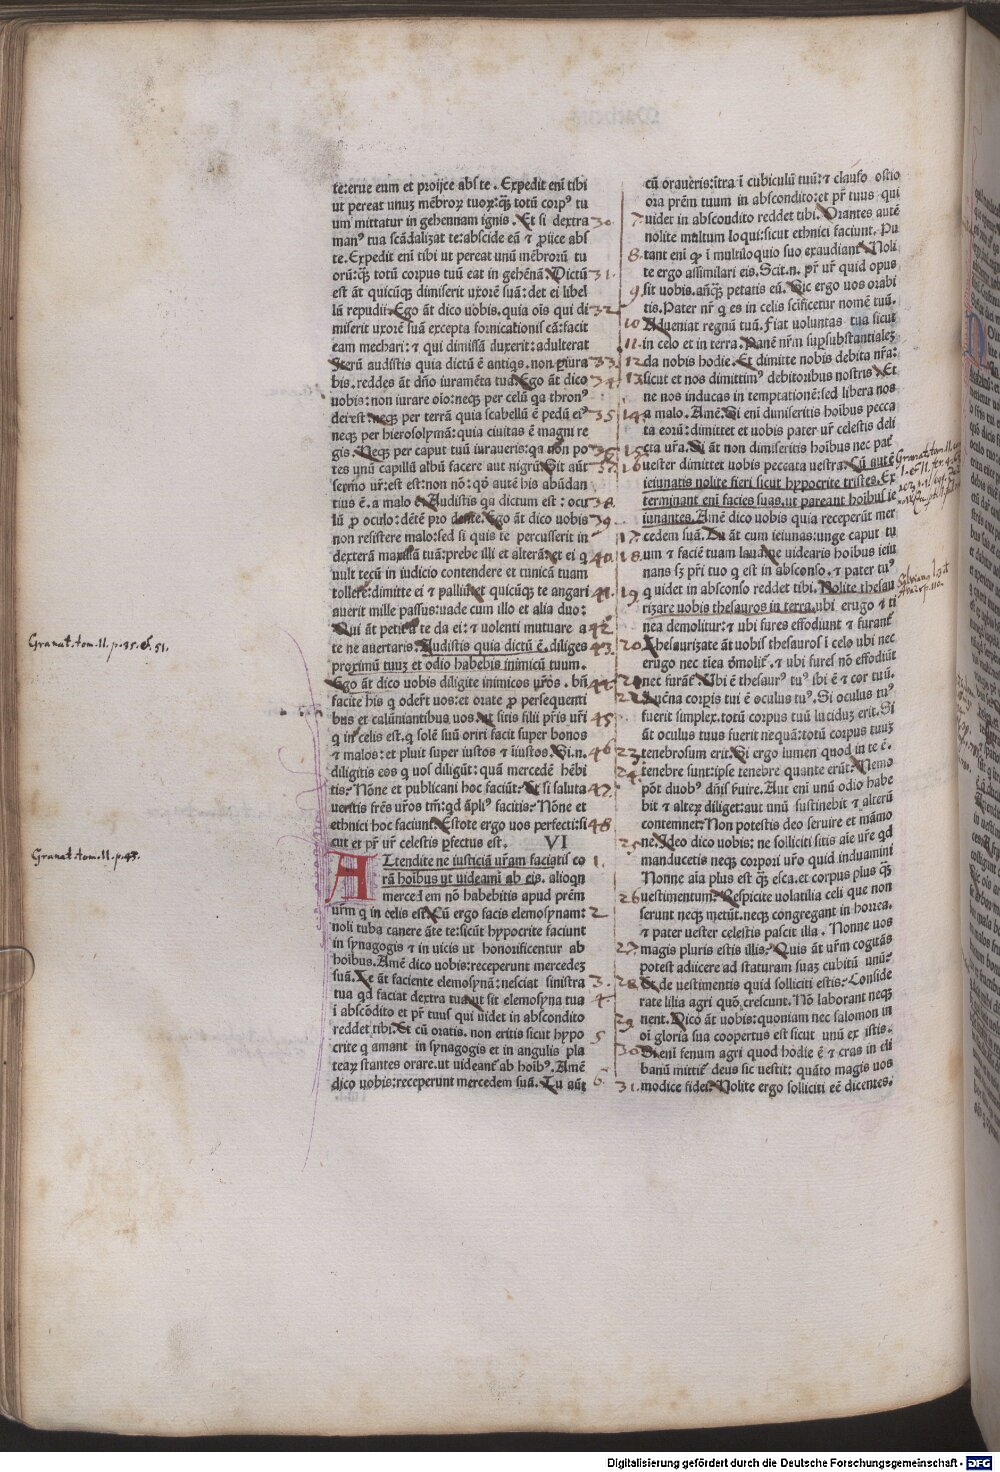 te:erue eum et proijce abs te. Expedit enī tibi
ut pereat unuꝫ mēbroꝝ tuoꝝ: qꝫ totū corpꝰ tu
um mittatur in gehennam ignis. Et si dextra
manꝰ tua scādalizat te: abscide eā ⁊ ꝓiice abs
te. Expedit enī tibi ut pereat unū mēbrorū tu
orū: qꝫ totū corpus tuū eat in gehēnā. Dictū
est āt quicūqꝫ dimiserit uxorē suā: det ei libel
lū repudii. Ego āt dico uobis. quia oīs qui di
miserit uxorē suā excepta fornicationis cā: facit
eam mechari: ⁊ qui dimissā duxerit: adulterat
Iterū audistis quia dictū ē antiqs. non ꝑiura
bis. reddes āt dño iuramēta tua. Ego āt dico
uobis: non iurare oīo: neqꝫ per celū qa thronꝰ
dei est: neqꝫ per terrā quia scabellū ē pedū eiꝰ
neqꝫ per hierosolymā: quia ciuitas ē magni re
gis. Neqꝫ per caput tuū iuraueris: qa non po
tes unū capillā albū facere aut nigrū. Sit aūt
sermo ur̄: est est: non nō: qō autē his abūdan
tius ē. a malo ē. Audistis qa dictum est: ocu
lū ꝓ oculo: dētē pro dente. Ego āt dico uobis
non resistere malo: sed si quis te percusserit in
dexterā maxillā tuā: prebe illi et alterā: et ei q
uult tecū in iudicio contendere et tunicā tuam
tollere: dimitte ei ⁊ palliū: et quicūqꝫ te angari
auerit mille passus: uade cum illo et alia duo:
Qui āt petit a te da ei: ⁊ uolenti mutuare a
te ne auertaris. Audistis quia dictū ē. diliges
proximū tuuꝫ et odio habebis inimicū tuum.
Ego āt dico uobis diligite inimicos ur̄os. bn̄
facite his q oder̄t uos: et orate ꝓ persequenti
bus et calūniantibus uos. ut sitis filii pr̄is ur̄i
q in celis est. q solē suū oriri facit super bonos
⁊ malos: et pluit super iustos ⁊ iīustos. Si.n.
diligitis eos q uos diligūt: quā mercedē hēbi
tis: Nōne et publicani hoc faciūt: Et si saluta
ueritis fr̄es ur̄os tm̄: qd āpliꝰ facitis: Nōne et
ethnici hoc faciunt. Estote ergo uos perfecti: si
cut et pr̄ ur̄ celestis ꝑfectus est. VI
ATtendite ne iusticiā ur̄am faciatis co
rā hoibus ut uideami ab eis. alioqn
mercedem nō habebitis apud prēm
ur̄m q in celis est. Cū ergo facis elemosynam:
noli tuba canere āte te: sicut hypocrite faciunt
in synagogis ⁊ in uicis ut honorificentur ab
hoibus. Amē dico uobis: receperunt mercedeꝫ
suā. Te āt faciente elemosynā: nesciat sinistra
tua qd faciat dextra tua: ut sit elemosyna tua
ī abscōdito et pr̄ tuus qui uidet in abscondito
reddet tibi. Et cū oratis. non eritis sicut hypo
crite q amant in synagogis et in angulis pla
tearꝝ stantes orare. ut uideant̄ ab hoibꝰ. Amē
dico uobis: receperunt mercedem suā. Tu aūt
30.
31.
32
33.
34.
35.
36
37.
38.
39.
40.
41.
42
43.
44.
45
46
47.
48
1.
2
3.
4.
5
6.
cū oraueris: ītra ī cubiculū tuū: ⁊ clauso ostio
ora prēm tuum in abscondito: et pr̄ tuus qui
uidet in abscondito reddet tibi. Orantes autē
nolite multum loqui: sicut ethnici faciunt. Pu
tant enī ꝙ ī multiloquio suo exaudiant̄. Noli
te ergo assimilari eis. Scit.n. pr̄ ur̄ quid opus
sit uobis. añqꝫ petatis eū. Sic ergo uos orabi
tis. Pater nr̄ q es in celis sc̄ificetur nomē tuū.
Adueniat regnū tuū. Fiat uoluntas tua sicut
in celo et in terra. Panē nr̄m suꝑsubstantialeꝫ
da nobis hodie. Et dimitte nobis debita nr̄a:
sicut et nos dimittimꝰ debitoribus nostris. Et
ne nos inducas in temptationē: sed libera nos
a malo. Amē. Si enī dimiseritis hoibus pecca
ta eorū: dimittet et uobis pater ur̄ celestis deli
cta ur̄a. Si āt non dimiseritis hoibus nec pat̄
uester dimittet uobis peccata uestra. Cū autē
ieiunatis nolite fieri sicut hypocrite tristes. Ex
terminant enī facies suas. ut pareant hoibus ie
iunantes. Amē dico uobis quia receperūt mer
cedem suā. Tu āt cum ieiunas: unge caput tu
um ⁊ faciē tuam laua: ne uidearis hoibus ieiu
nans sꝫ pr̄i tuo q est in absconso. ⁊ pater tuꝰ
q uidet in absconso reddet tibi. Nolite thesau
rizare uobis thesauros in terra. ubi erugo ⁊ ti
nea demolitur: ⁊ ubi fures effodiunt ⁊ furant̄
Thesaurizate āt uobis thesauros ī celo ubi nec
erugo nec tīea ōmolit̄. ⁊ ubi fures nō effodiūt
nec furāt̄. Ubi ē thesaurꝰ tuꝰ ibi ē ⁊ cor tuū.
Lucēna corpis tui ē oculus tuꝰ. Si oculus tuꝰ
fuerit simplex. totū corpus tuū luciduꝫ erit. Si
āt oculus tuus fuerit nequā: totū corpus tuuꝫ
tenebrosum erit. Si ergo lumen quod in te ē.
tenebre sunt: ipse tenebre quante erūt: Nemo
pōt duobꝰ dn̄is ẜuire. Aut enī unū odio habe
bit ⁊ alterꝝ diliget: aut unū sustinebit ⁊ alterū
contemnet: Non potestis deo seruire et māmo
ne. Ideo dico uobis: ne solliciti sitis aīe ur̄e qd
manducetis neqꝫ corpori ur̄o quid induamini
Nonne aīa plus est qꝫ esca. et corpus plus qꝫ
uestimentum: Respicite uolatilia celi que non
serunt neqꝫ metūt. neqꝫ congregant in horrea.
⁊ pater uester celestis pascit illa. Nonne uos
magis pluris estis illis: Quis āt ur̄m cogitās
potest adiicere ad staturam suaꝫ cubitū unū:
Et de uestimentis quid solliciti estis: Conside
rate lilia agri quō crescunt. Nō laborant neqꝫ
nent. Dico āt uobis: quoniam nec salomon in
oī gloria sua coopertus est sicut unū ex istis.
Si enī fenum agri quod hodie ē ⁊ cras in cli
banū mittit̄ deus sic uestit: quāto magis uos
modice fidei. Nolite ergo solliciti eē dicentes.
7.
8.
9.
10
11.
12.
13.
14.
15.
16
17.
18.
19
20
21
22.
23.
24.
25.
26
27.
28.
29
30
31.
Granat. tom. 11. p. 35. et. 51.
Granat. tom. 11. p. 43.
Digitalisierung gefördert durch die Deutsche Forschungsgemeinschaft - DFG